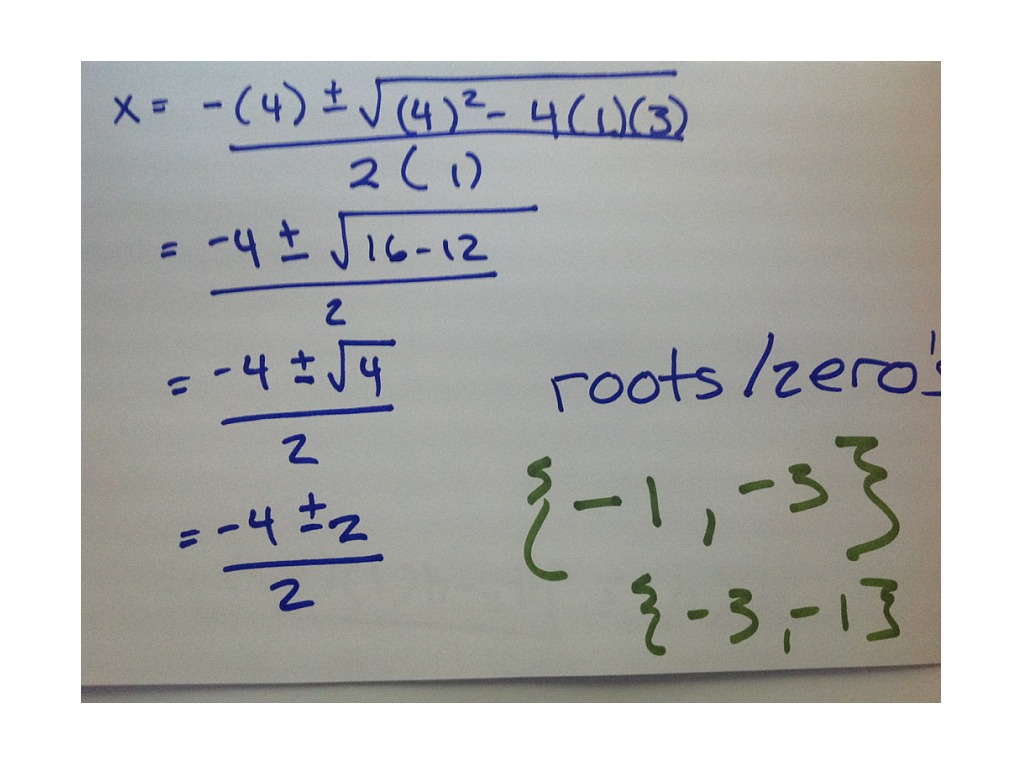 x = -(4) ± √(4)² - 4(1)(3)
2(1)
= -4 ± √16-12
2
= -4 ± √4
2
= -4 ± 2
2
roots/zero's
{-1, -3}
{-3, -1}